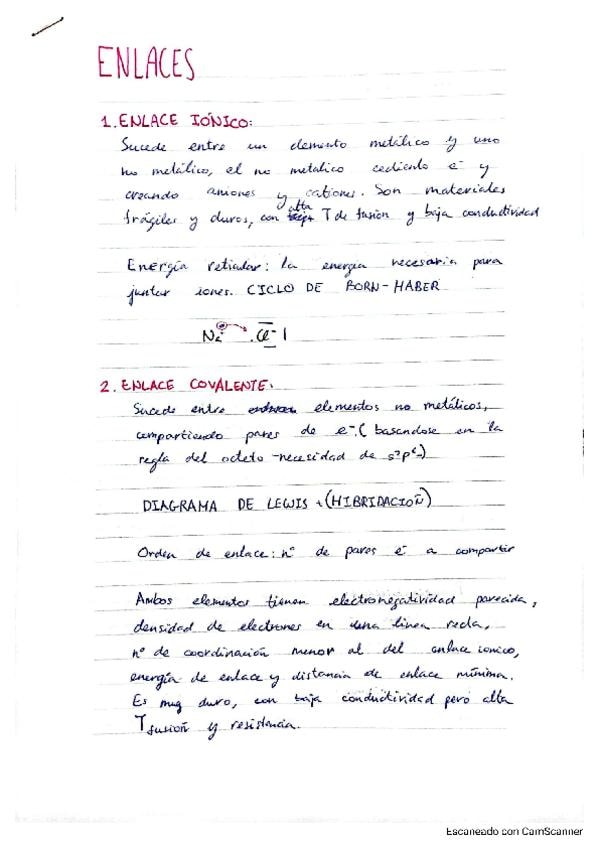 ENLACES
1. ENLACE IÓNICO:
Sucede entre un elemento metálico y uno
no metálico, el no metalico cediendo e⁻ y
creando aniones y cationes. Son materiales
frágiles y duros, con alta T de fusión y baja conductividad
Energía reticular: la energía necesaria para
juntar iones. CICLO DE BORN-HABER
Na . Cl
2. ENLACE COVALENTE.
Sucede entre elementos no metálicos,
compartiendo pares de e⁻. (basandose en la
regla del octeto - necesidad de s²p⁶)
DIAGRAMA DE LEWIS + (HIBRIDACIÓN)
Orden de enlace: nº de pares e⁻ a compartir
Ambos elementos tienen electronegatividad parecida,
densidad de electrones en una linea recta,
nº de coordinación menor al del enlace ionico,
energía de enlace y distancia de enlace mínima.
Es muy duro, con baja conductividad pero alta
T fusión y resistencia.
Escaneado con CamScanner